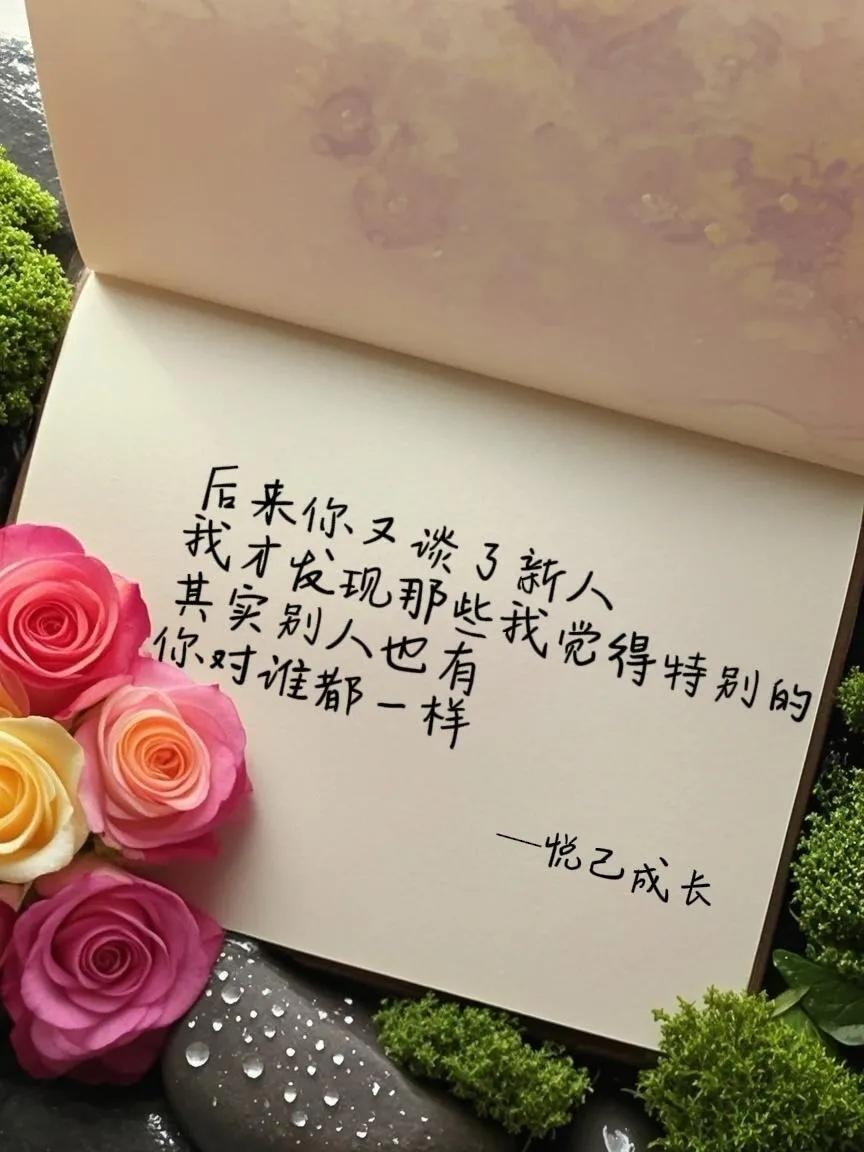 后来你又谈了新人
我才发现那些我觉得特别的
其实别人也有
你对谁都一样
—悦己成长